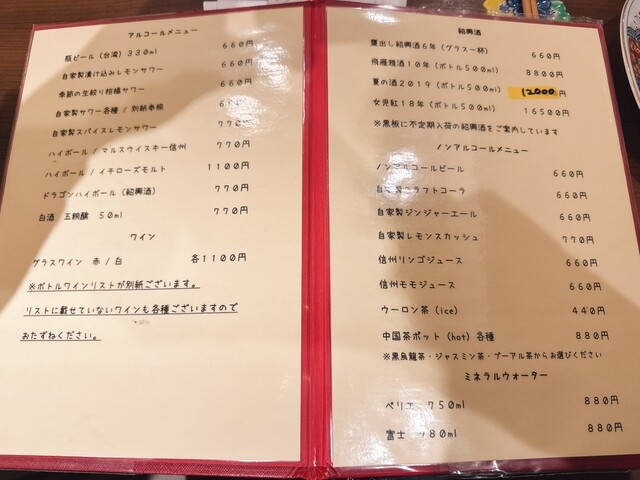 アルコールメニュー
瓶ビール（台湾）３３０ml 660円
自家製漬け込みレモンサワー 660円
季節の生絞り柑橘サワー 660円
自家製サワー各種 / 別紙参照 660円
自家製スパイスレモンサワー 770円
ハイボール / マルスウイスキー信州 770円
ハイボール / イチローズモルト 1100円
ドラゴンハイボール（紹興酒） 770円
白酒 五粮醸 50ml 770円
ワイン
グラスワイン 赤 / 白 各1100円
※ボトルワインリストが別紙ございます。
リストに載せていないワインも各種ございますので
おたずねください。
紹興酒
甕出し紹興酒6年（グラス一杯） 660円
飛雁雅酒10年（ボトル500ml） 8800円
夏の酒2019（ボトル500ml） 12000円
女児紅18年（ボトル500ml） 16500円
※黒板に不定期入荷の紹興酒をご案内しています
ノンアルコールメニュー
ノンアルコールビール 660円
自家製クラフトコーラ 660円
自家製ジンジャーエール 660円
自家製レモンスカッシュ 770円
信州リンゴジュース 660円
信州モモジュース 660円
ウーロン茶（ice） 440円
中国茶ポット（hot）各種 880円
※黒烏龍茶・ジャスミン茶・プーアル茶からお選びください
ミネラルウォーター
ペリエ 750ml 880円
富士 780ml 880円